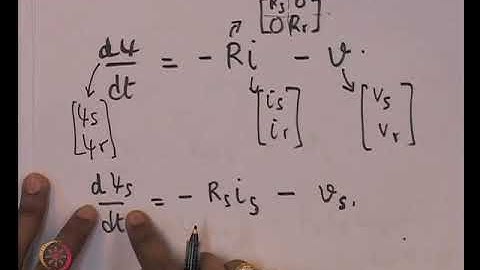 [Rs 0
0 Rr]
dψ/dt = - Ri - v.
[ψs
ψr]
[is
ir]
[vs
vr]
dψs/dt = - Rs is - vs.